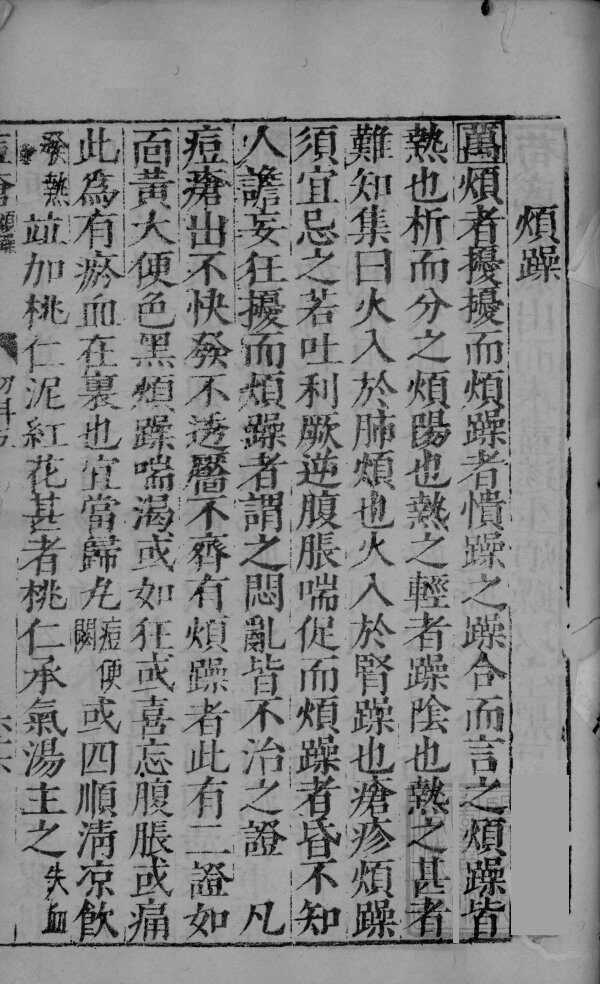 煩躁
萬煩者擾擾而煩躁者憒躁之躁合而言之煩躁皆
熱也析而分之煩陽也熱之輕者躁陰也熱之甚者
難知集曰火入於肺煩也火入於腎躁也瘡疹煩躁
須宜忌之若吐利厥逆腹脹喘促而煩躁者昏不知
人譫妄狂擾而煩躁者謂之悶亂皆不治之證 凡
痘瘡出不快發不透靨不齊有煩躁者此有二證如
面黃大便色黑煩躁喘渴或如狂或喜忘腹脹或痛
此為有瘀血在裏也宜當歸丸痘便閉或四順清凉飲
發熱並加桃仁泥紅花甚者桃仁承氣湯主之失血